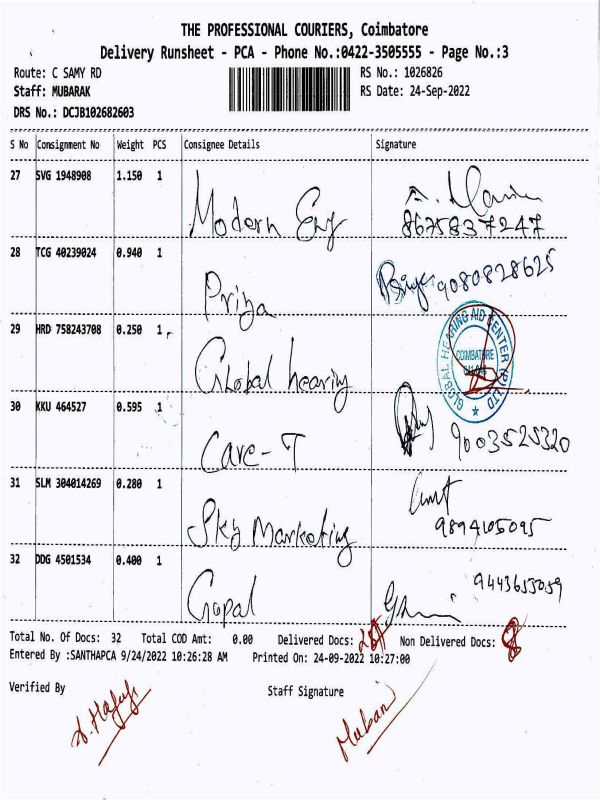 THE PROFESSIONAL COURIERS, Coimbatore
Delivery Runsheet - PCA - Phone No.:0422-3505555 - Page No.:3
Route: C SAMY RD RS No.: 1026826
Staff: MUBARAK RS Date: 24-Sep-2022
DRS No.: DCJB102682603
S No Consignment No Weight PCS Consignee Details Signature
27 SVG 1948908 1.150 1 Modern Eng
8675837247
28 TCG 40239024 0.940 1 Priya 9080828625
29 HRD 758243708 0.250 1 Global hearing
GLOBAL HEARING AID CENTER (P) LTD
COIMBATORE
30 KKU 464527 0.595 1 Care-T 9003525320
31 SLM 304014269 0.280 1 Sky Marketing
9894105095
32 DDG 4501534 0.400 1 Gopal 9443653059
Total No. Of Docs: 32 Total COD Amt: 0.00 Delivered Docs: Non Delivered Docs:
Entered By :SANTHAPCA 9/24/2022 10:26:28 AM Printed On: 24-09-2022 10:27:00
Verified By Staff Signature